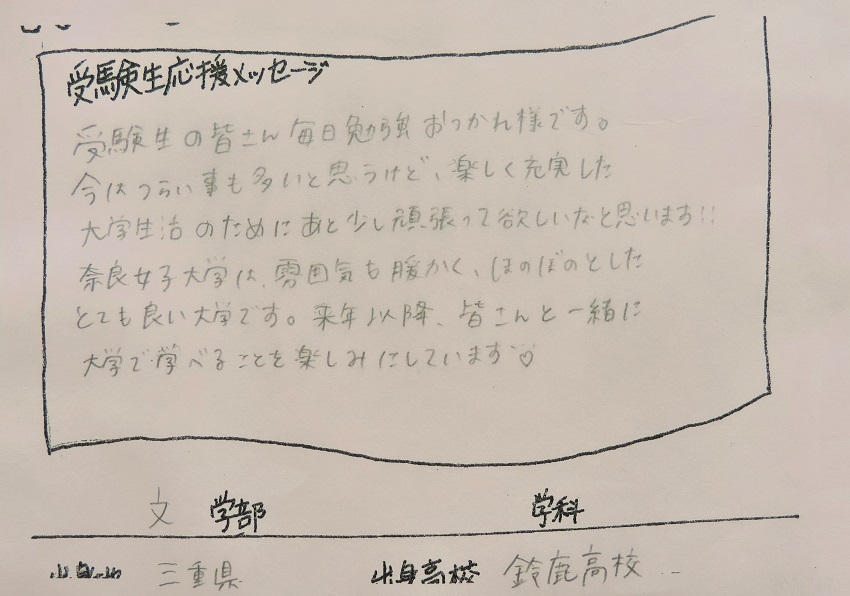 受験生応援メッセージ
受験生の皆さん毎日勉強おつかれ様です。
今はつらい事も多いと思うけど、楽しく充実した
大学生活のためにあと少し頑張って欲しいなと思います!!
奈良女子大学は、雰囲気も暖かく、ほのぼのとした
とても良い大学です。来年以降、皆さんと一緒に
大学で学べることを楽しみにしています♡
文 学部 学科
三重県 出身高校 鈴鹿高校